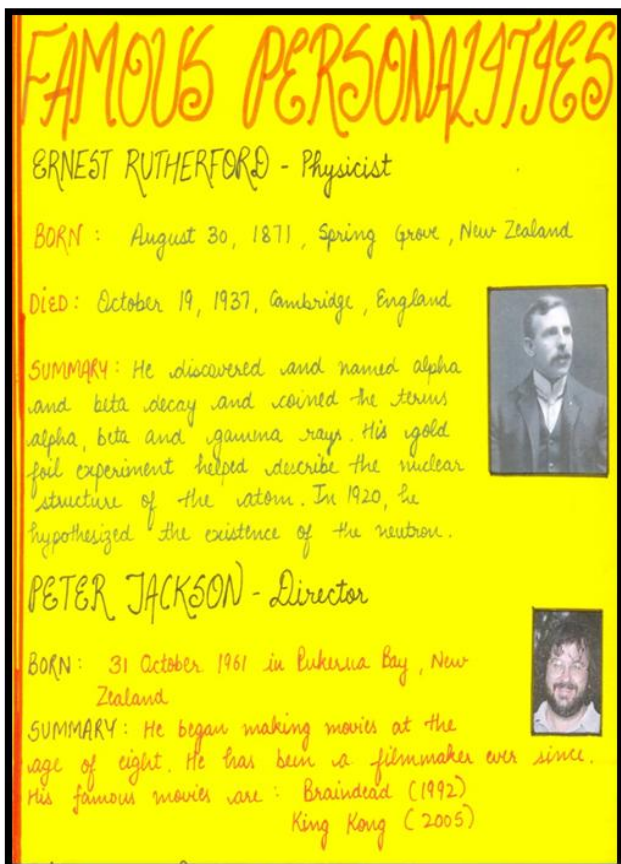 FAMOUS PERSONALITIES
ERNEST RUTHERFORD - Physicist
BORN : August 30, 1871, Spring Grove, New Zealand
DIED : October 19, 1937, Cambridge, England
SUMMARY : He discovered and named alpha
and beta decay and coined the terms
alpha, beta and gamma rays. His gold
foil experiment helped describe the nuclear
structure of the atom. In 1920, he
hypothesized the existence of the neutron.
PETER JACKSON - Director
BORN : 31 October 1961 in Pukerua Bay, New
Zealand
SUMMARY : He began making movies at the
age of eight. He has been a filmmaker ever since.
His famous movies are : Braindead (1992)
King Kong (2005)